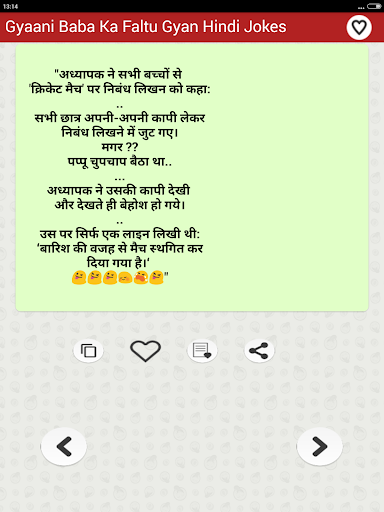 13:14
Gyaani Baba Ka Faltu Gyan Hindi Jokes
"अध्यापक ने सभी बच्चों से
'क्रिकेट मैच' पर निबंध लिखन को कहा:
..
सभी छात्र अपनी-अपनी कापी लेकर
निबंध लिखने में जुट गए।
मगर ??
पप्पू चुपचाप बैठा था..
...
अध्यापक ने उसकी कापी देखी
और देखते ही बेहोश हो गये।
..
उस पर सिर्फ एक लाइन लिखी थी:
'बारिश की वजह से मैच स्थगित कर
दिया गया है।'
"